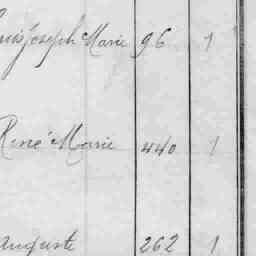 Louis Joseph Marie 96 1
René Marie 440 1
Auguste 262 1